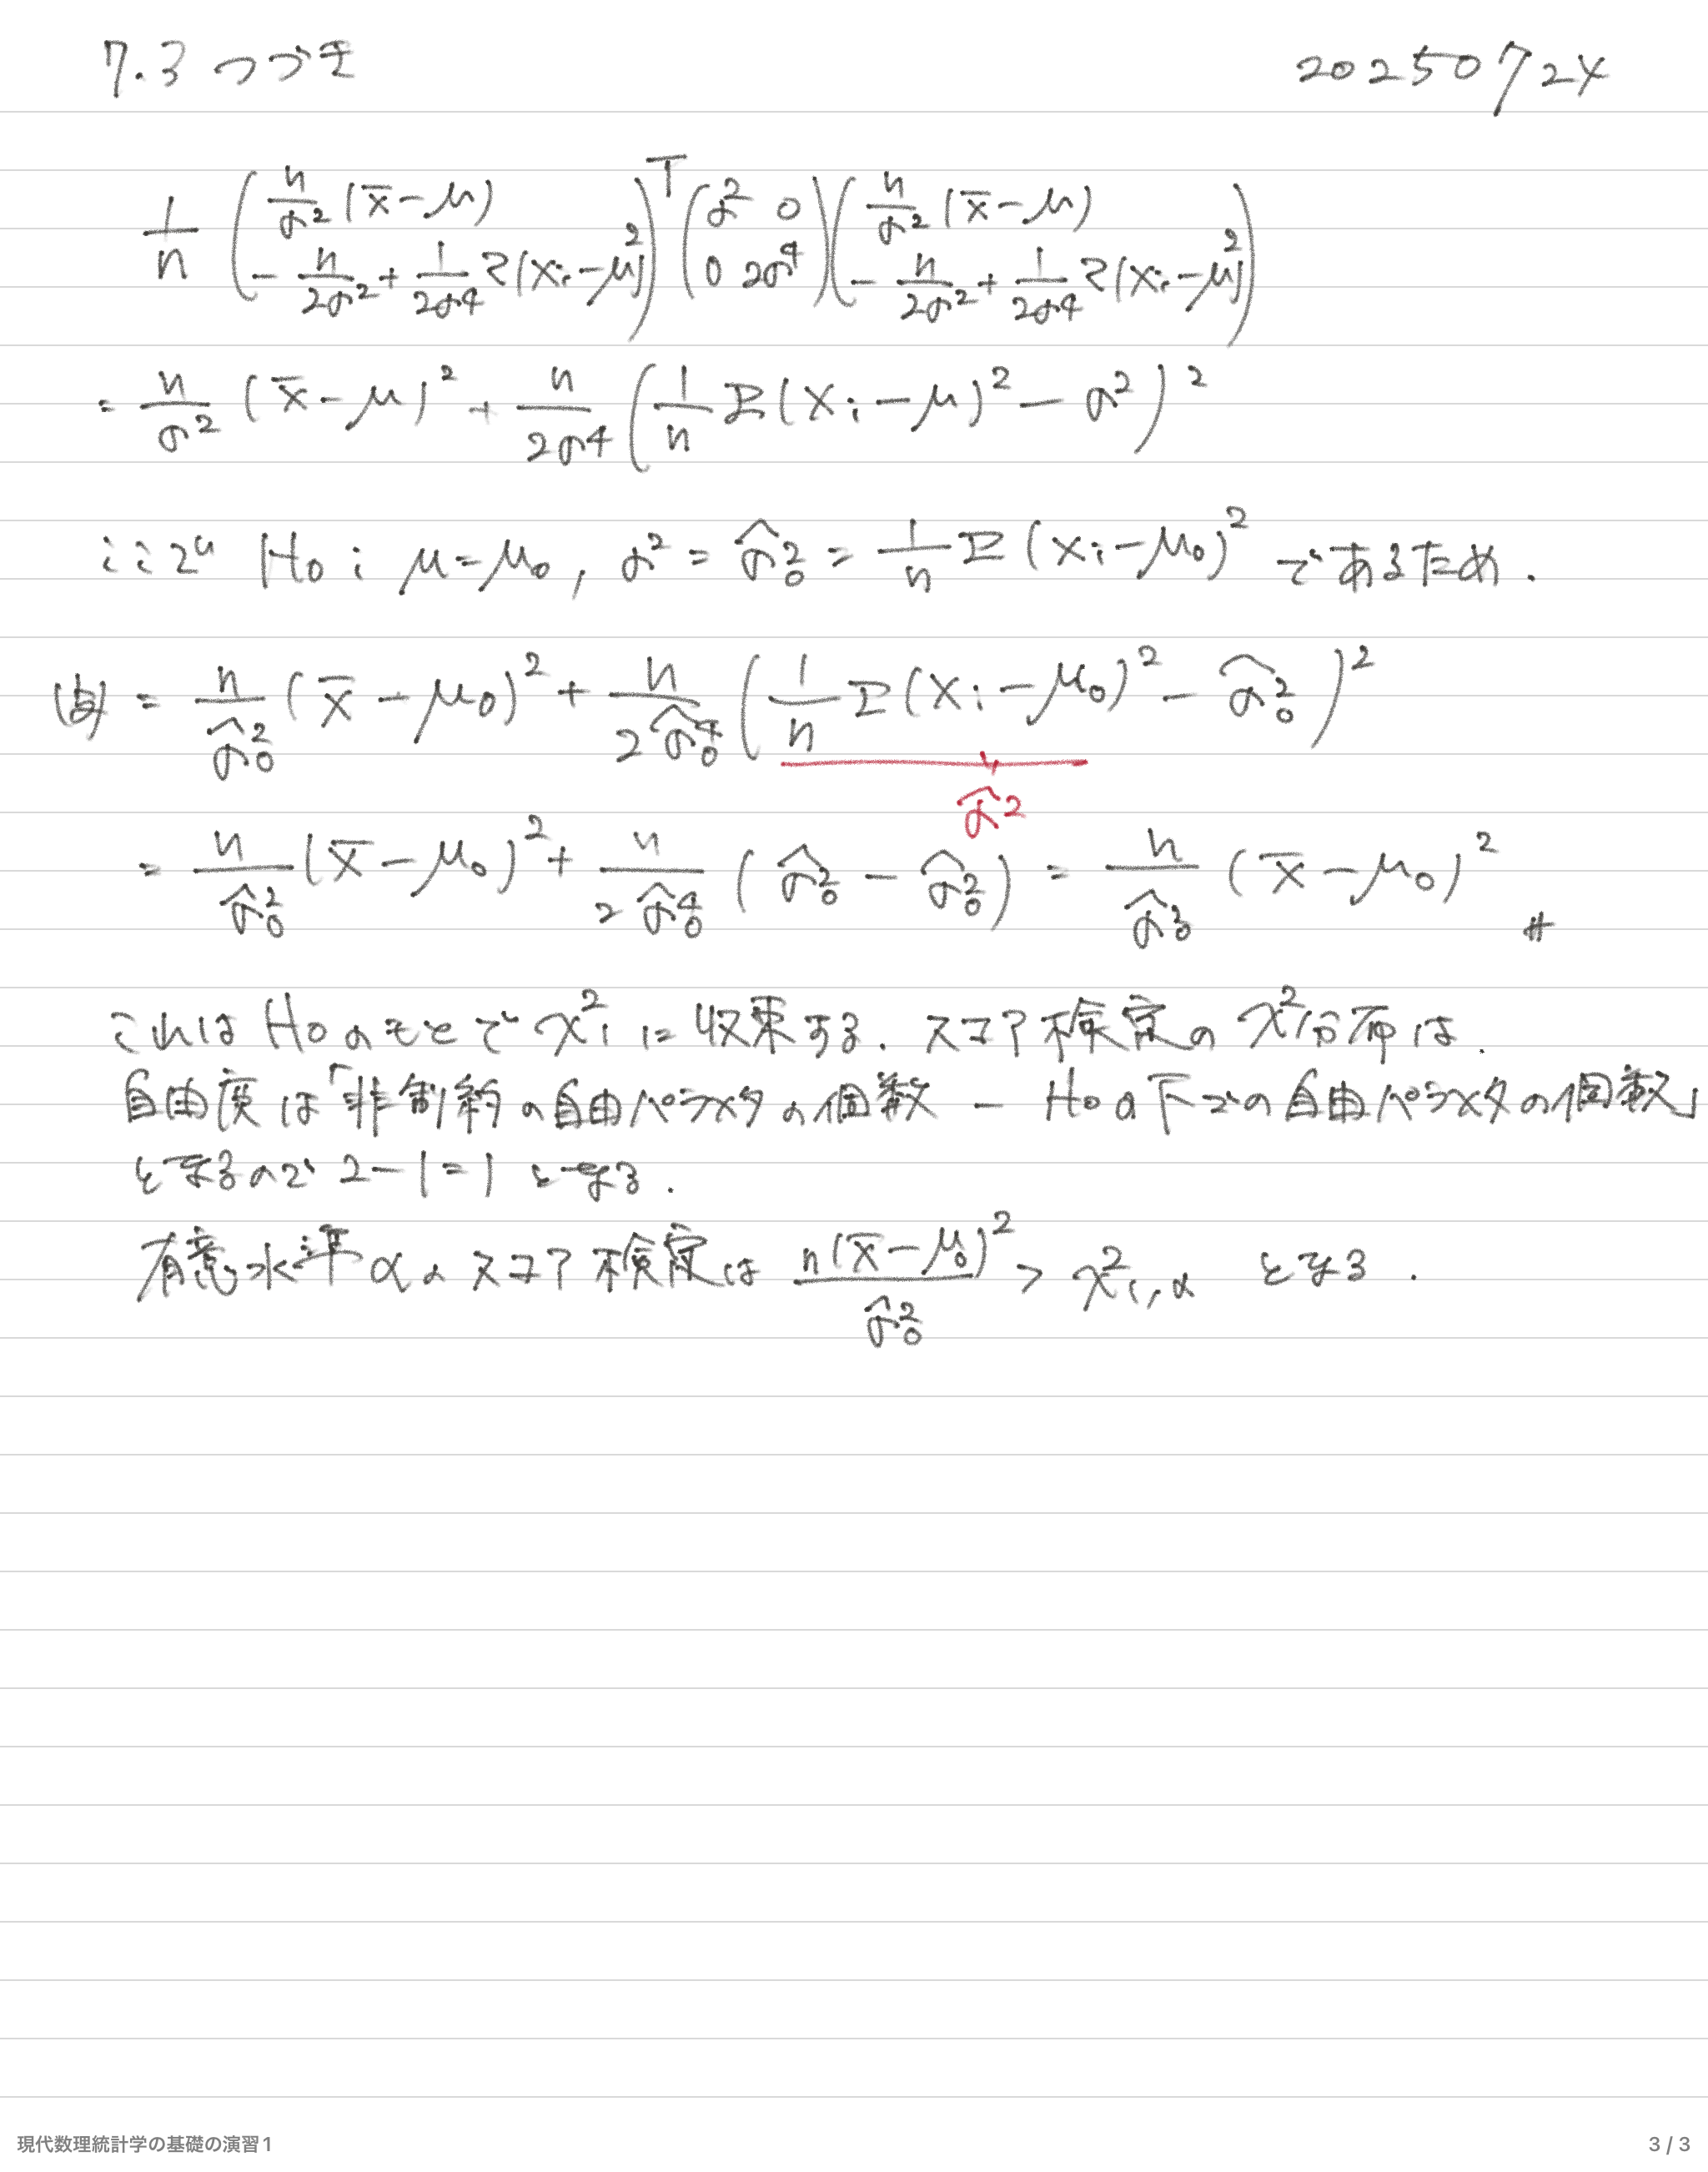 7.3 つづき 20250724
1/n ( n/σ² (x̄-μ) ; -n/2σ² + 1/2σ⁴ Σ(xi-μ)² )ᵀ ( σ² 0 ; 0 2σ⁴ ) ( n/σ² (x̄-μ) ; -n/2σ² + 1/2σ⁴ Σ(xi-μ)² )
= n/σ² (x̄-μ)² + n/2σ⁴ ( 1/n Σ(xi-μ)² - σ² )²
ここで H₀ : μ=μ₀, σ² = σ̂₀² = 1/n Σ(xi-μ₀)² であるため.
(与) = n/σ̂₀² (x̄-μ₀)² + n/2σ̂₀⁴ ( 1/n Σ(xi-μ₀)² - σ̂₀² )²
σ̂²
= n/σ̂₀² (x̄-μ₀)² + n/2σ̂₀⁴ ( σ̂₀² - σ̂₀² ) = n/σ̂₀² (x̄-μ₀)² #
これは H₀のもとで χ²₁ に収束する. スコア検定の χ²分布は.
自由度は「非制約の自由パラメタの個数 - H₀の下での自由パラメタの個数」
となるので 2-1=1 となる.
有意水準 αのスコア検定は n(x̄-μ₀)²/σ̂₀² > χ²₁,α となる.
現代数理統計学の基礎の演習1 3 / 3